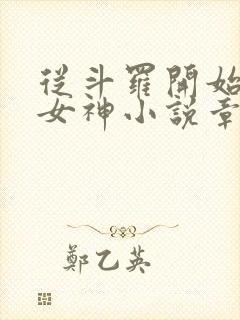 從斗羅開始
女神小說章
鄭乙英